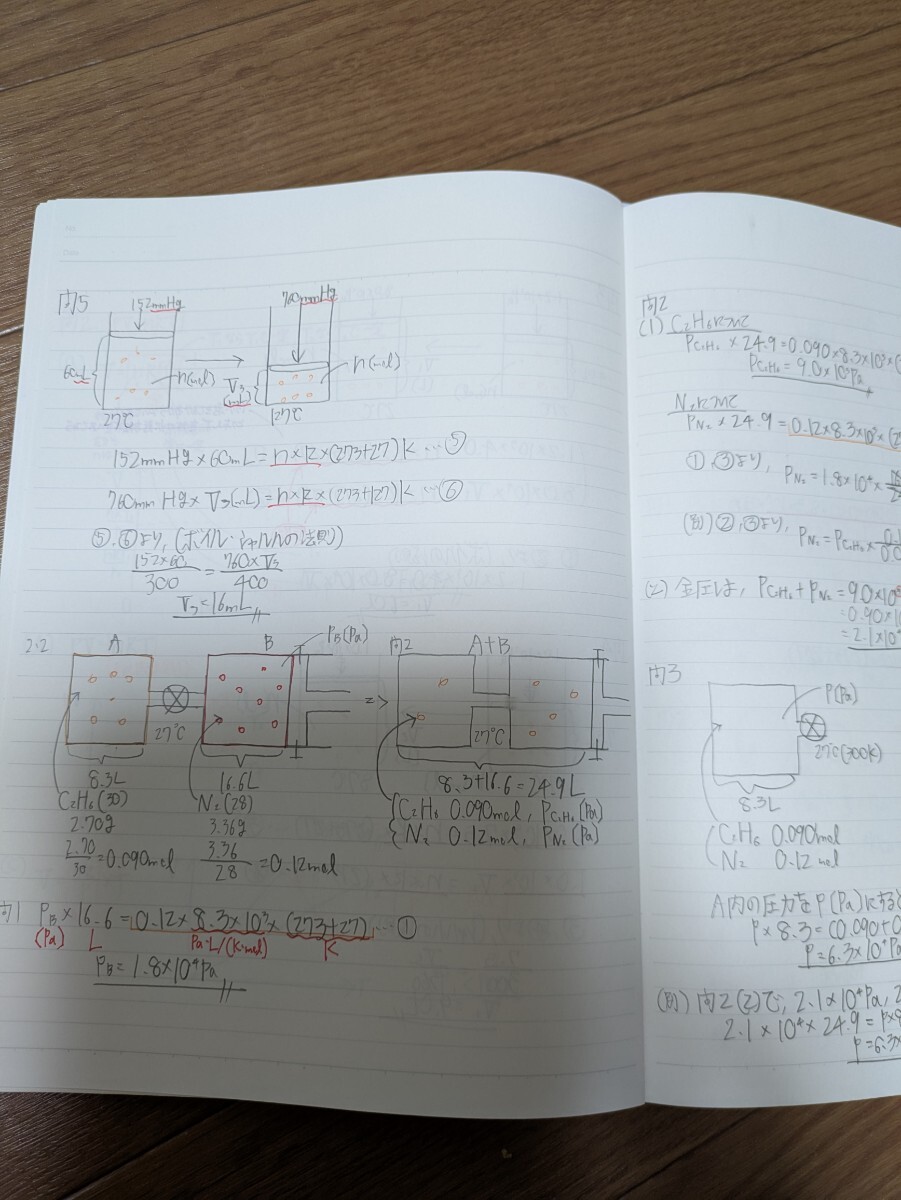 問5
152mmHg
760mmHg
60mL
n(mol)
V₃
(mL)
n(mol)
27℃
127℃
152mmHg×60mL=n×R×(273+27)K…⑤
760mmHg×V₃(mL)=n×R×(273+127)K…⑥
⑤,⑥より,(ボイル・シャルルの法則)
152×60/300=760×V₃/400
V₃=16mL
2.2
A
B
PB(Pa)
27℃
8.3L
16.6L
C₂H₆(30)
N₂(28)
2.70g
3.36g
2.70/30=0.090mol
3.36/28=0.12mol
問2
A+B
27℃
8.3+16.6=24.9L
C₂H₆ 0.090mol, PC₂H₆(Pa)
N₂ 0.12mol, PN₂(Pa)
問1 PB×16.6=0.12×8.3×10³×(273+27)…①
(Pa) L Pa・L/(K・mol) K
PB=1.8×10⁴Pa
問2
(1) C₂H₆について
PC₂H₆×24.9=0.090×8.3×10³×(
PC₂H₆=9.0×10³Pa
N₂について
PN₂×24.9=0.12×8.3×10³×(2
①,③より,
PN₂=1.8×10⁴×
(別)②,③より,
PN₂=PC₂H₆×
(2) 全圧は, PC₂H₆+PN₂=9.0×10
=0.90×10
=2.1×10⁴
問3
P(Pa)
27℃(300K)
8.3L
C₂H₆ 0.090mol
N₂ 0.12mol
A内の圧力をP(Pa)にすると
P×8.3=(0.090+0
P=6.3×10⁴Pa
(別)問2(2)で, 2.1×10⁴Pa, 2
2.1×10⁴×24.9=P×8
P=6.3×